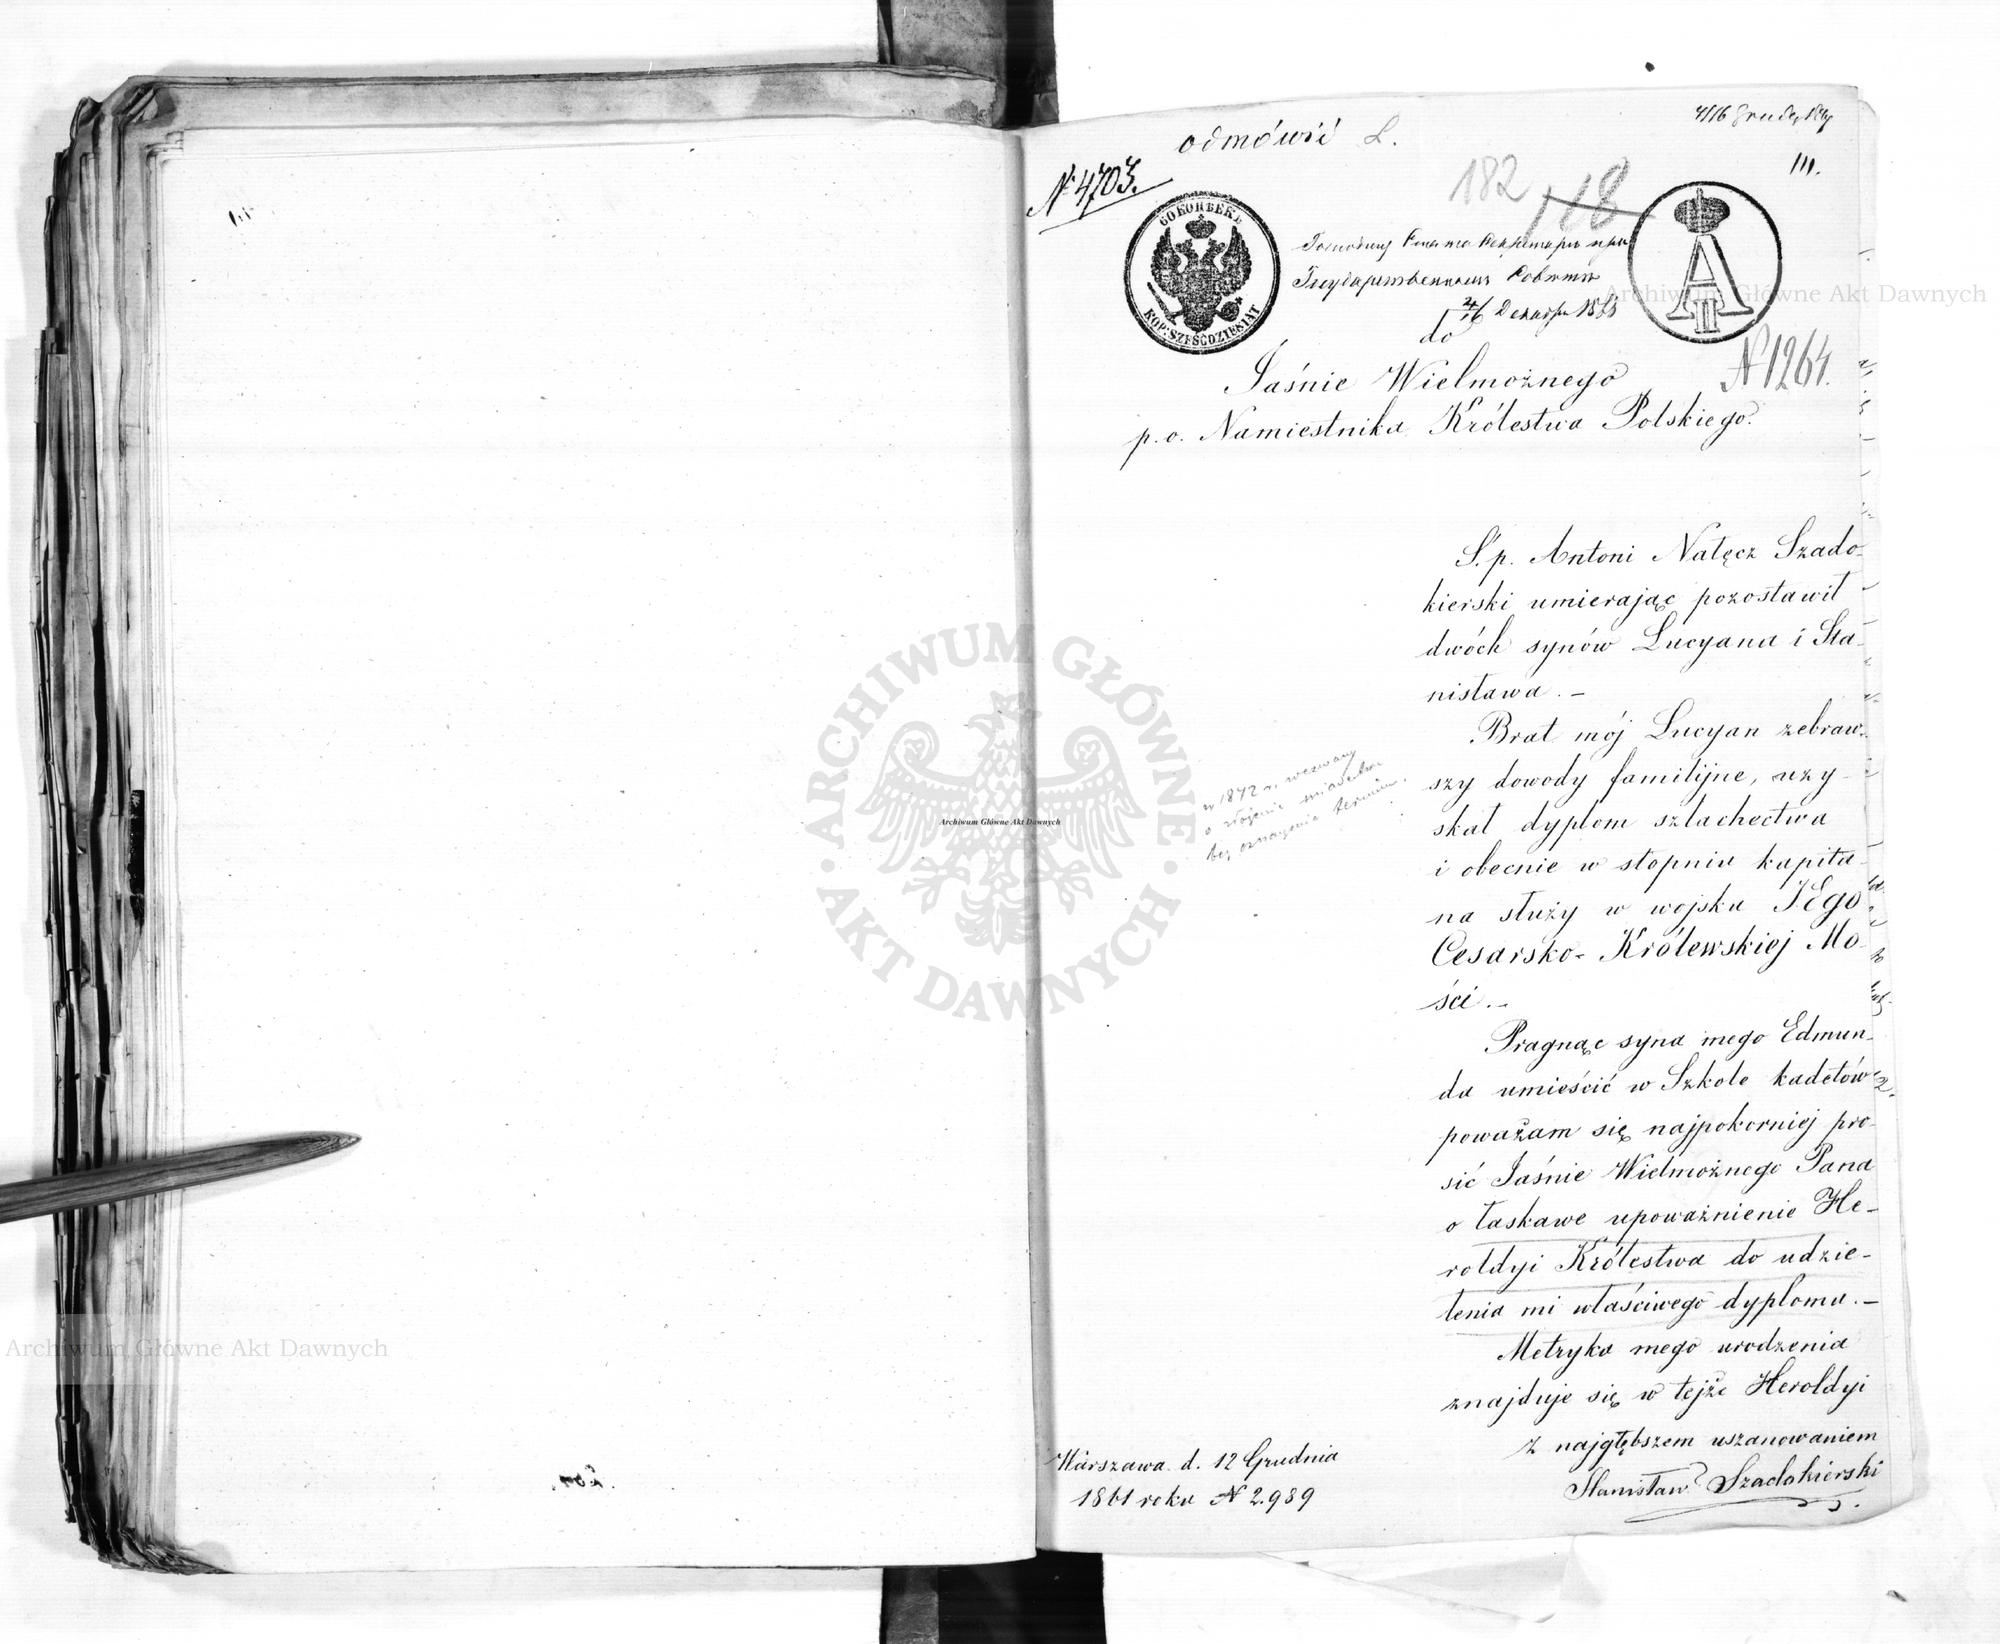 odmówić L.
№ 4703.
111.
182
118
СОКОНВЕКЪ
KOP: SZEŚĆDZIESIĄT
A II
№ 1264.
do
Jaśnie Wielmożnego
p.o. Namiestnika Królestwa Polskiego.
Ś.p. Antoni Nałęcz Szado-
kierski umierając pozostawił
dwóch synów Lucyana i Sta-
nisława. –
Brat mój Lucyan zebraw-
szy dowody familijne, uzy-
skał dyplom szlachectwa
i obecnie w stopniu kapita-
na służy w wojsku JEgo
Cesarsko-Królewskiej Mo-
ści. –
Pragnąc syna mego Edmun-
da umieścić w Szkole kadetów
poważam się najpokorniej pro-
sić Jaśnie Wielmożnego Pana
o łaskawe upoważnienie He-
roldyi Królestwa do udzie-
lenia mi właściwego dyplomu. –
Metryka mego urodzenia
znajduje się w tejże Heroldyi
z najgłębszem uszanowaniem
Stanisław Szadokierski
Warszawa d. 12 Grudnia
1861 roku № 2.989
ARCHIWUM GŁÓWNE AKT DAWNYCH
Archiwum Główne Akt Dawnych
Archiwum Główne Akt Dawnych
Archiwum Główne Akt Dawnych